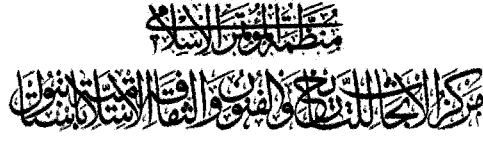 منظمة المؤتمر الإسلامي
مركز الأبحاث للتاريخ والفنون والثقافة الإسلامية باستانبول